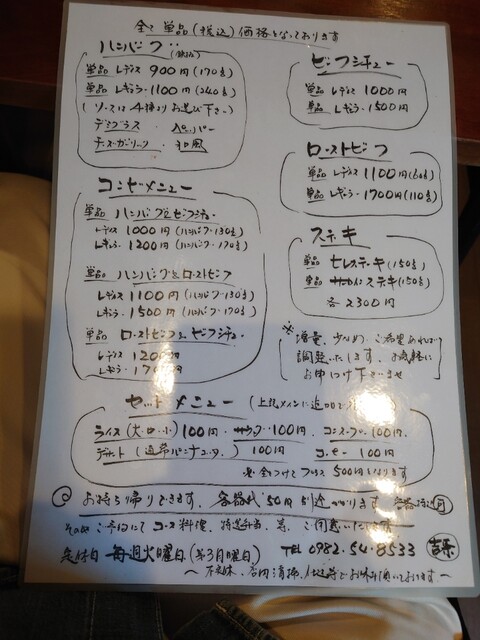 全て単品(税込)価格となっております
ハンバーグ
単品 レディス 900円(170g)
単品 レギュラー 1100円(240g)
(ソースは4種よりお選び下さい)
デミグラス ・ ペッパー
チーズガーリック ・ 和風
コンビメニュー
単品 ハンバーグ&ビーフシチュー
レディス 1000円(ハンバーグ130g)
レギュラー 1200円(ハンバーグ170g)
単品 ハンバーグ&ローストビーフ
レディス 1100円(ハンバーグ130g)
レギュラー 1500円(ハンバーグ170g)
単品 ローストビーフ&ビーフシチュー
レディス 1200円
レギュラー 1700円
ビーフシチュー
単品 レディス 1000円
単品 レギュラー 1500円
ローストビーフ
単品 レディス 1100円(60g)
単品 レギュラー 1700円(110g)
ステーキ
単品 ヒレステーキ(150g)
単品 サーロインステーキ(150g)
各2300円
※
増量、少なめ、ご希望あれば
調整いたします。お気軽に
お申しつけ下さいませ
セットメニュー (上記メインに追加で
ライス(大・中・小)100円・サラダ・100円、コーンスープ・100円、
デザート(通常パンナコッタ)100円 コーヒー 100円
※全てつけてプラス500円となります
◎お持ち帰りできます。各容器代50円別途かかります
その他、ご予約にてコース料理、特製弁当、等、ご用意いたします
定休日 毎週火曜日(第3月曜日) TEL 0982-54-8533
〜不定休、店内清掃、仕込等でお休み頂いております〜